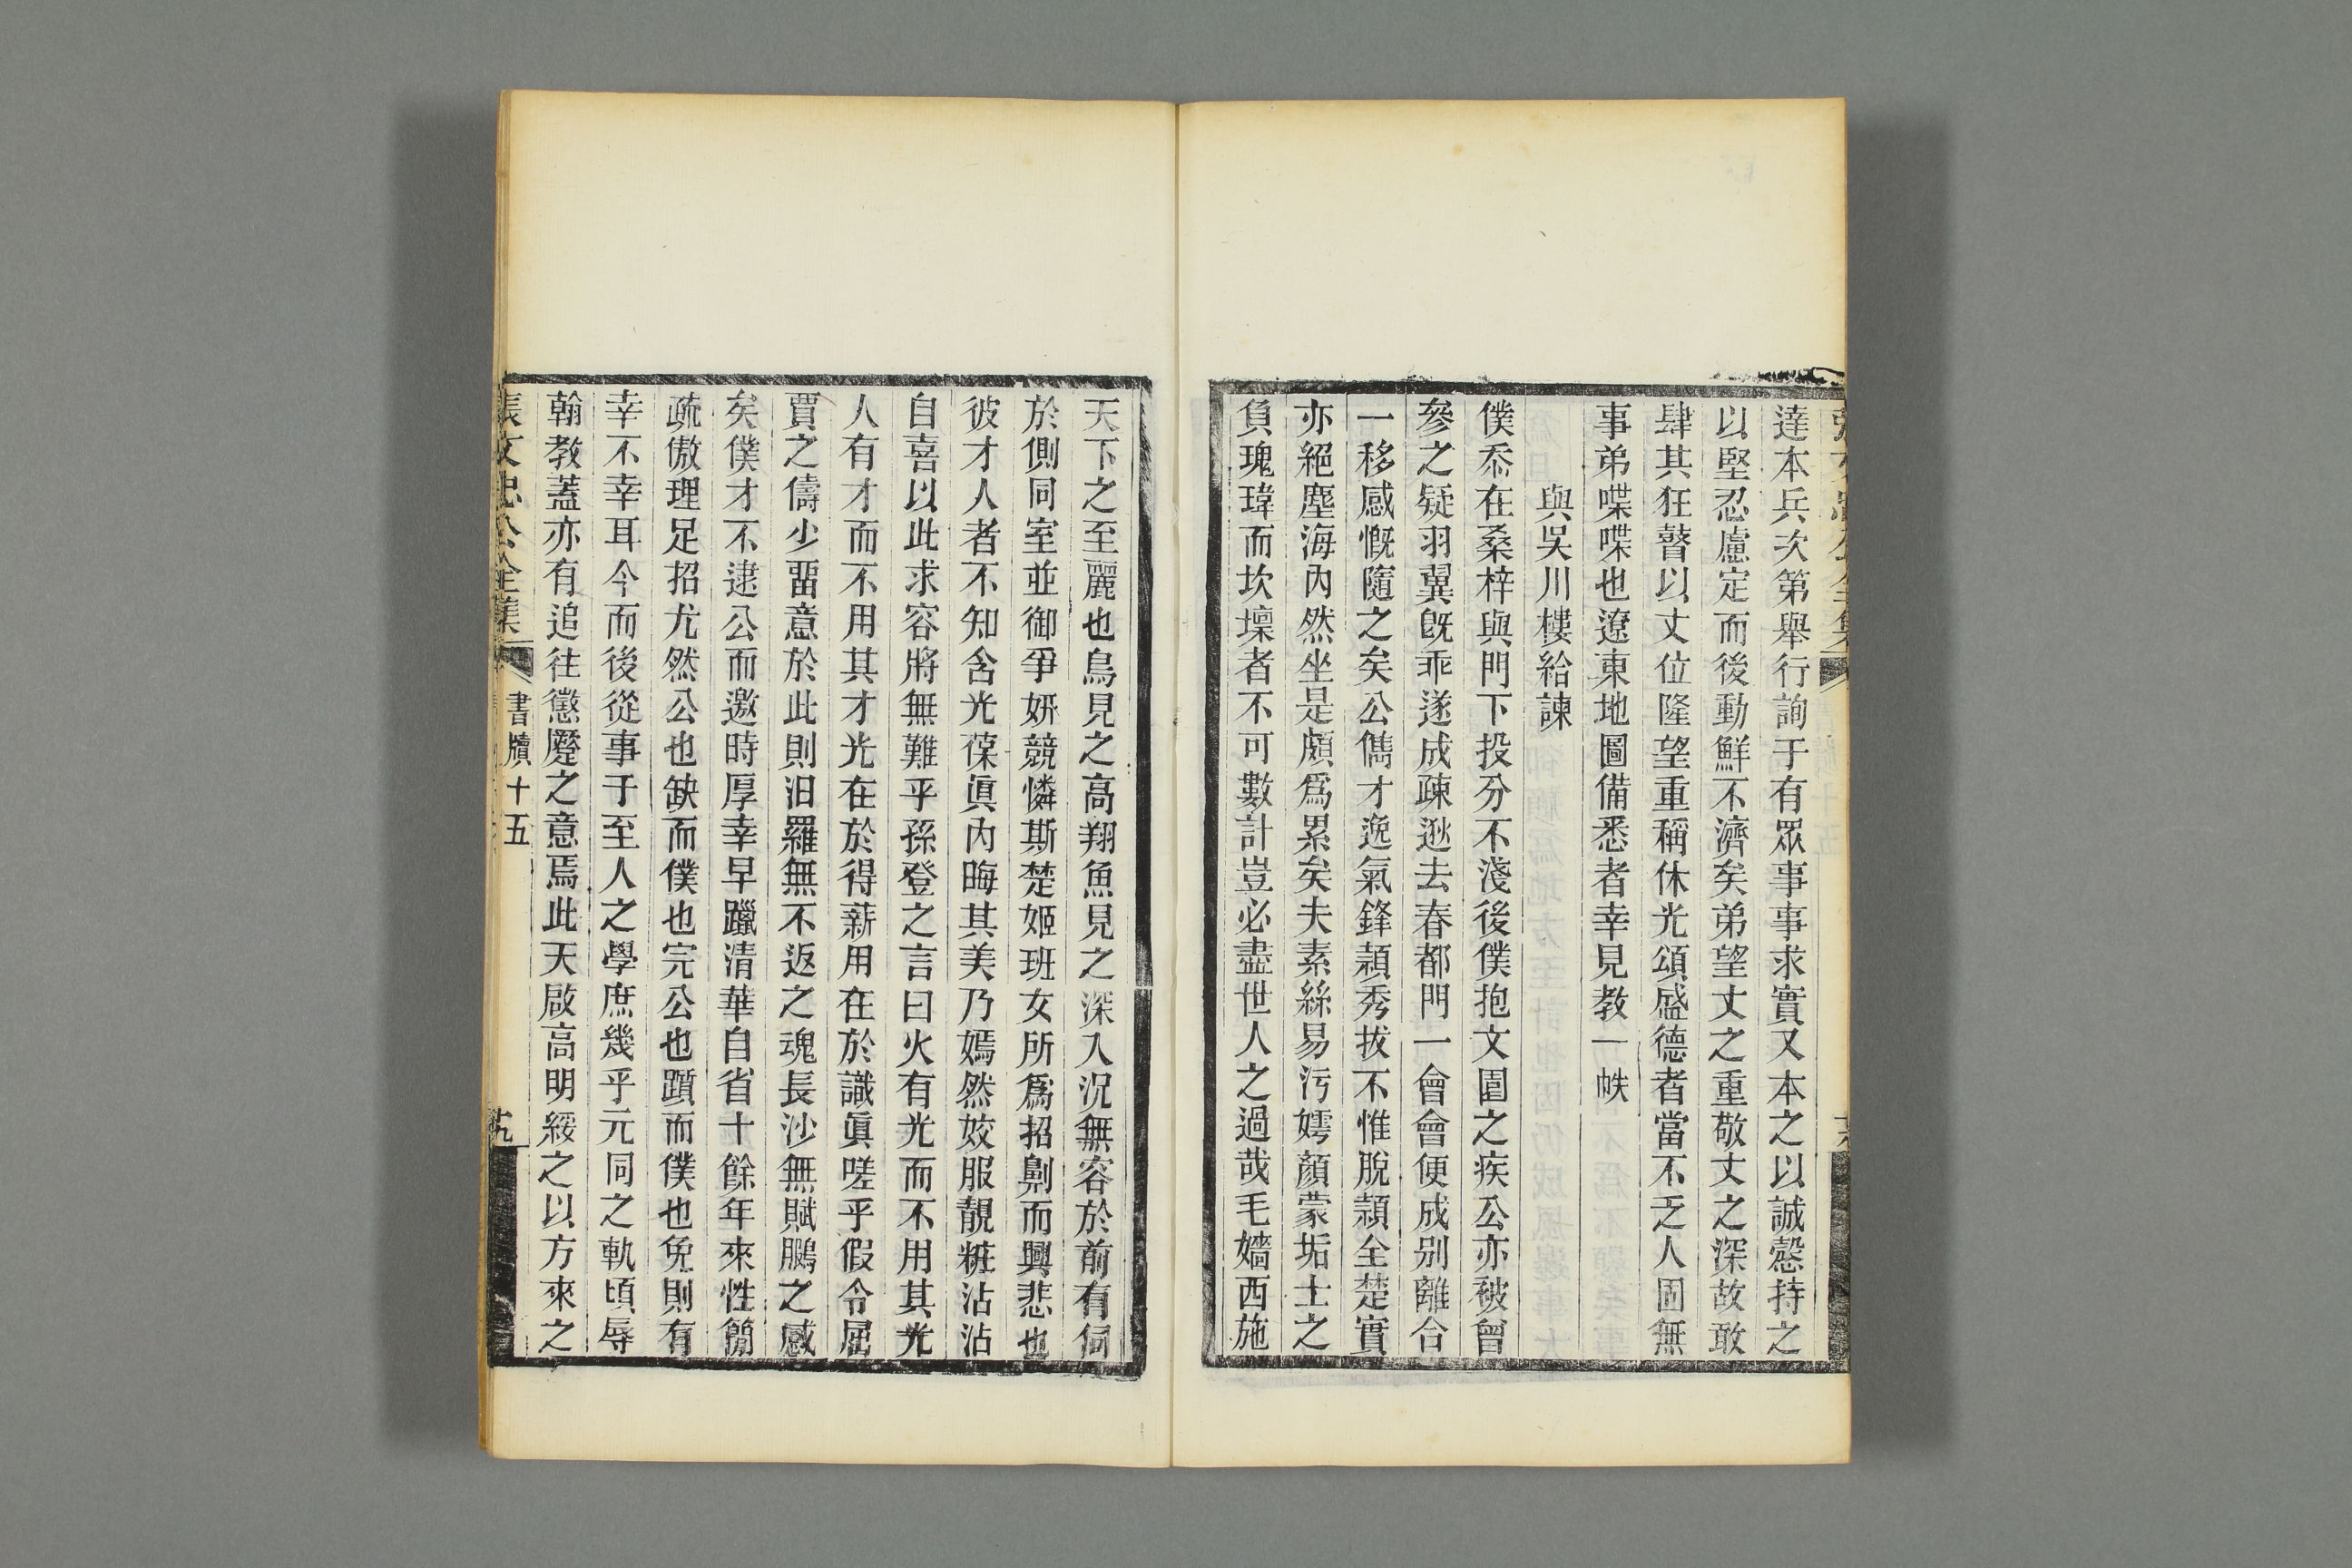 達本兵次第舉行詢于有眾事事求實又本之以誠慤持之
以堅忍慮定而後動鮮不濟矣弟望丈之重敬丈之深故敢
肆其狂瞽以丈位隆望重稱休光頌盛德者當不乏人固無
事弟喋喋也遼東地圖備悉者幸見教一帙
與吳川樓給諫
僕忝在桑梓與門下投分不淺後僕抱文園之疾公亦被曾
參之疑羽翼旣乖遂成疎逖去春都門一會會便成别離合
一移感慨隨之矣公儁才逸氣鋒穎秀拔不惟脫穎全楚實
亦絕塵海內然坐是頗爲累矣夫素絲易污嫮顏蒙垢士之
負瑰瑋而坎壈者不可數計豈必盡世人之過哉毛嬙西施
天下之至麗也鳥見之高翔魚見之深入況無容於前有伺
於側同室並御爭妍競憐斯楚姬班女所爲招劓而興悲也
彼才人者不知含光葆眞內晦其美乃嫣然姣服靚粧沾沾
自喜以此求容將無難乎孫登之言曰火有光而不用其光
人有才而不用其才光在於得薪用在於識眞嗟乎假令屈
賈之儔少畱意於此則汨羅無不返之魂長沙無賦鵩之感
矣僕才不逮公而邀時厚幸早躐清華自省十餘年來性簡
疏傲理足招尤然公也缺而僕也完公也躓而僕也免則有
幸不幸耳今而後從事于至人之學庶幾乎元同之軌頃辱
翰教蓋亦有追往懲蹷之意焉此天啟高明綏之以方來之
張文忠公全集 書牘十五